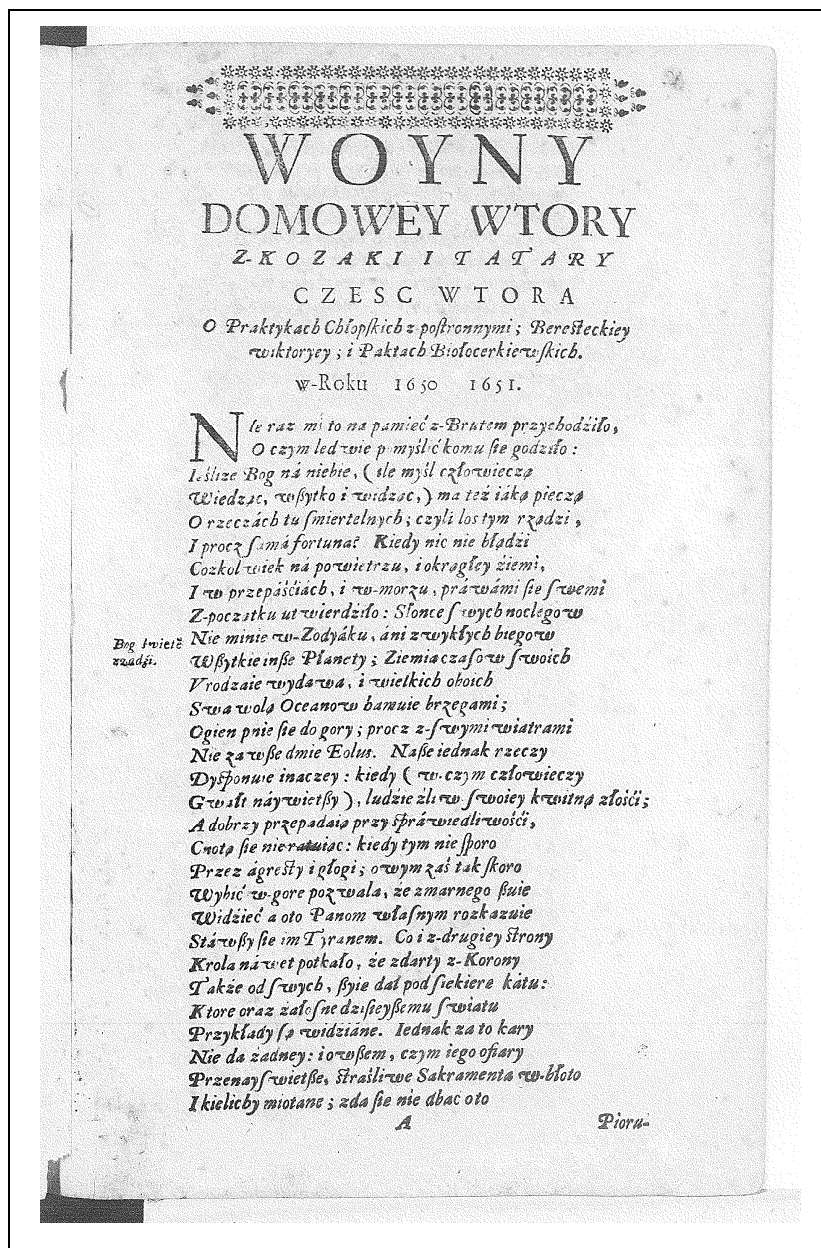 WOYNY
DOMOWEY WTORY
Z-KOZAKI I TATARY
CZESC WTORA
O Praktykach Chłopſkich z poſtronnymi; Bereſteckiey
wiktoryey; i Paktach Białocerkiewſkich.
w-Roku 1650 1651.
Nie raz mi to na pamieć z-Brutem przychodźiło,
O czym ledwie pomyślić komu ſie godziło:
Ieślize Bog ná niebie, (ile myśl człowieczą
Wiedząc, wßytko i widząc,) ma też iáką pieczą
O rzeczách tu ſmiertelnych; czyli los tym rządzi,
I procz ſamá fortuna? Kiedy nic nie błądzi
Cozkolwiek ná powietrzu, i okrągłey źiemi,
I w przepáśćiách, i w-morzu, práwámi ſie ſwemi
Z-początku utwierdziło: Słonce ſwych noclegow
Nie minie w-Zodyáku, áni zwykłych biegow
Bog świetě
rządźi.
Wßytkie inße Planety; Ziemia czaſow ſwoich
Vrodzaie wydawa, i wielkich oboich
Swa wolą Oceanow hamuie brzegami;
Ogien pnie ſie do gory; procz z-ſwymi wiatrami
Nie zawße dmie Eolus. Naße iednak rzeczy
Dyſponuie inaczey: kiedy (w-czym człowieczy
Gwałt náywietßy), ludzie źli w ſwoiey kwitną złośći;
A dobrzy przepadaią przy ſpráwiedliwośći,
Cnotą ſie nie ratuiąc: kiedy tym nie ſporo
Przez ágreſty i głogi; owym zaś tak ſkoro
Wybić w-gore pozwala, że z marnego ßuie
Widźieć a oto Panom właſnym rozkazuie
Stáwßy ſie im Tyranem. Co i z-drugiey ſtrony
Krola náwet potkało, że zdarty z-Korony
Także od ſwych, ßyie dał pod ſiekiere kátu:
Ktore oraz żałoſne dziſieyßemu ſwiatu
Przykłady ſą widziáne. Iednak za to kary
Nie da żadney: i owßem, czym iego ofiary
Przenayſwietße, ſtraśliwe Sakramenta w-błoto
I kielichy miotane; zda ſie nie dbac oto
A Pioru-